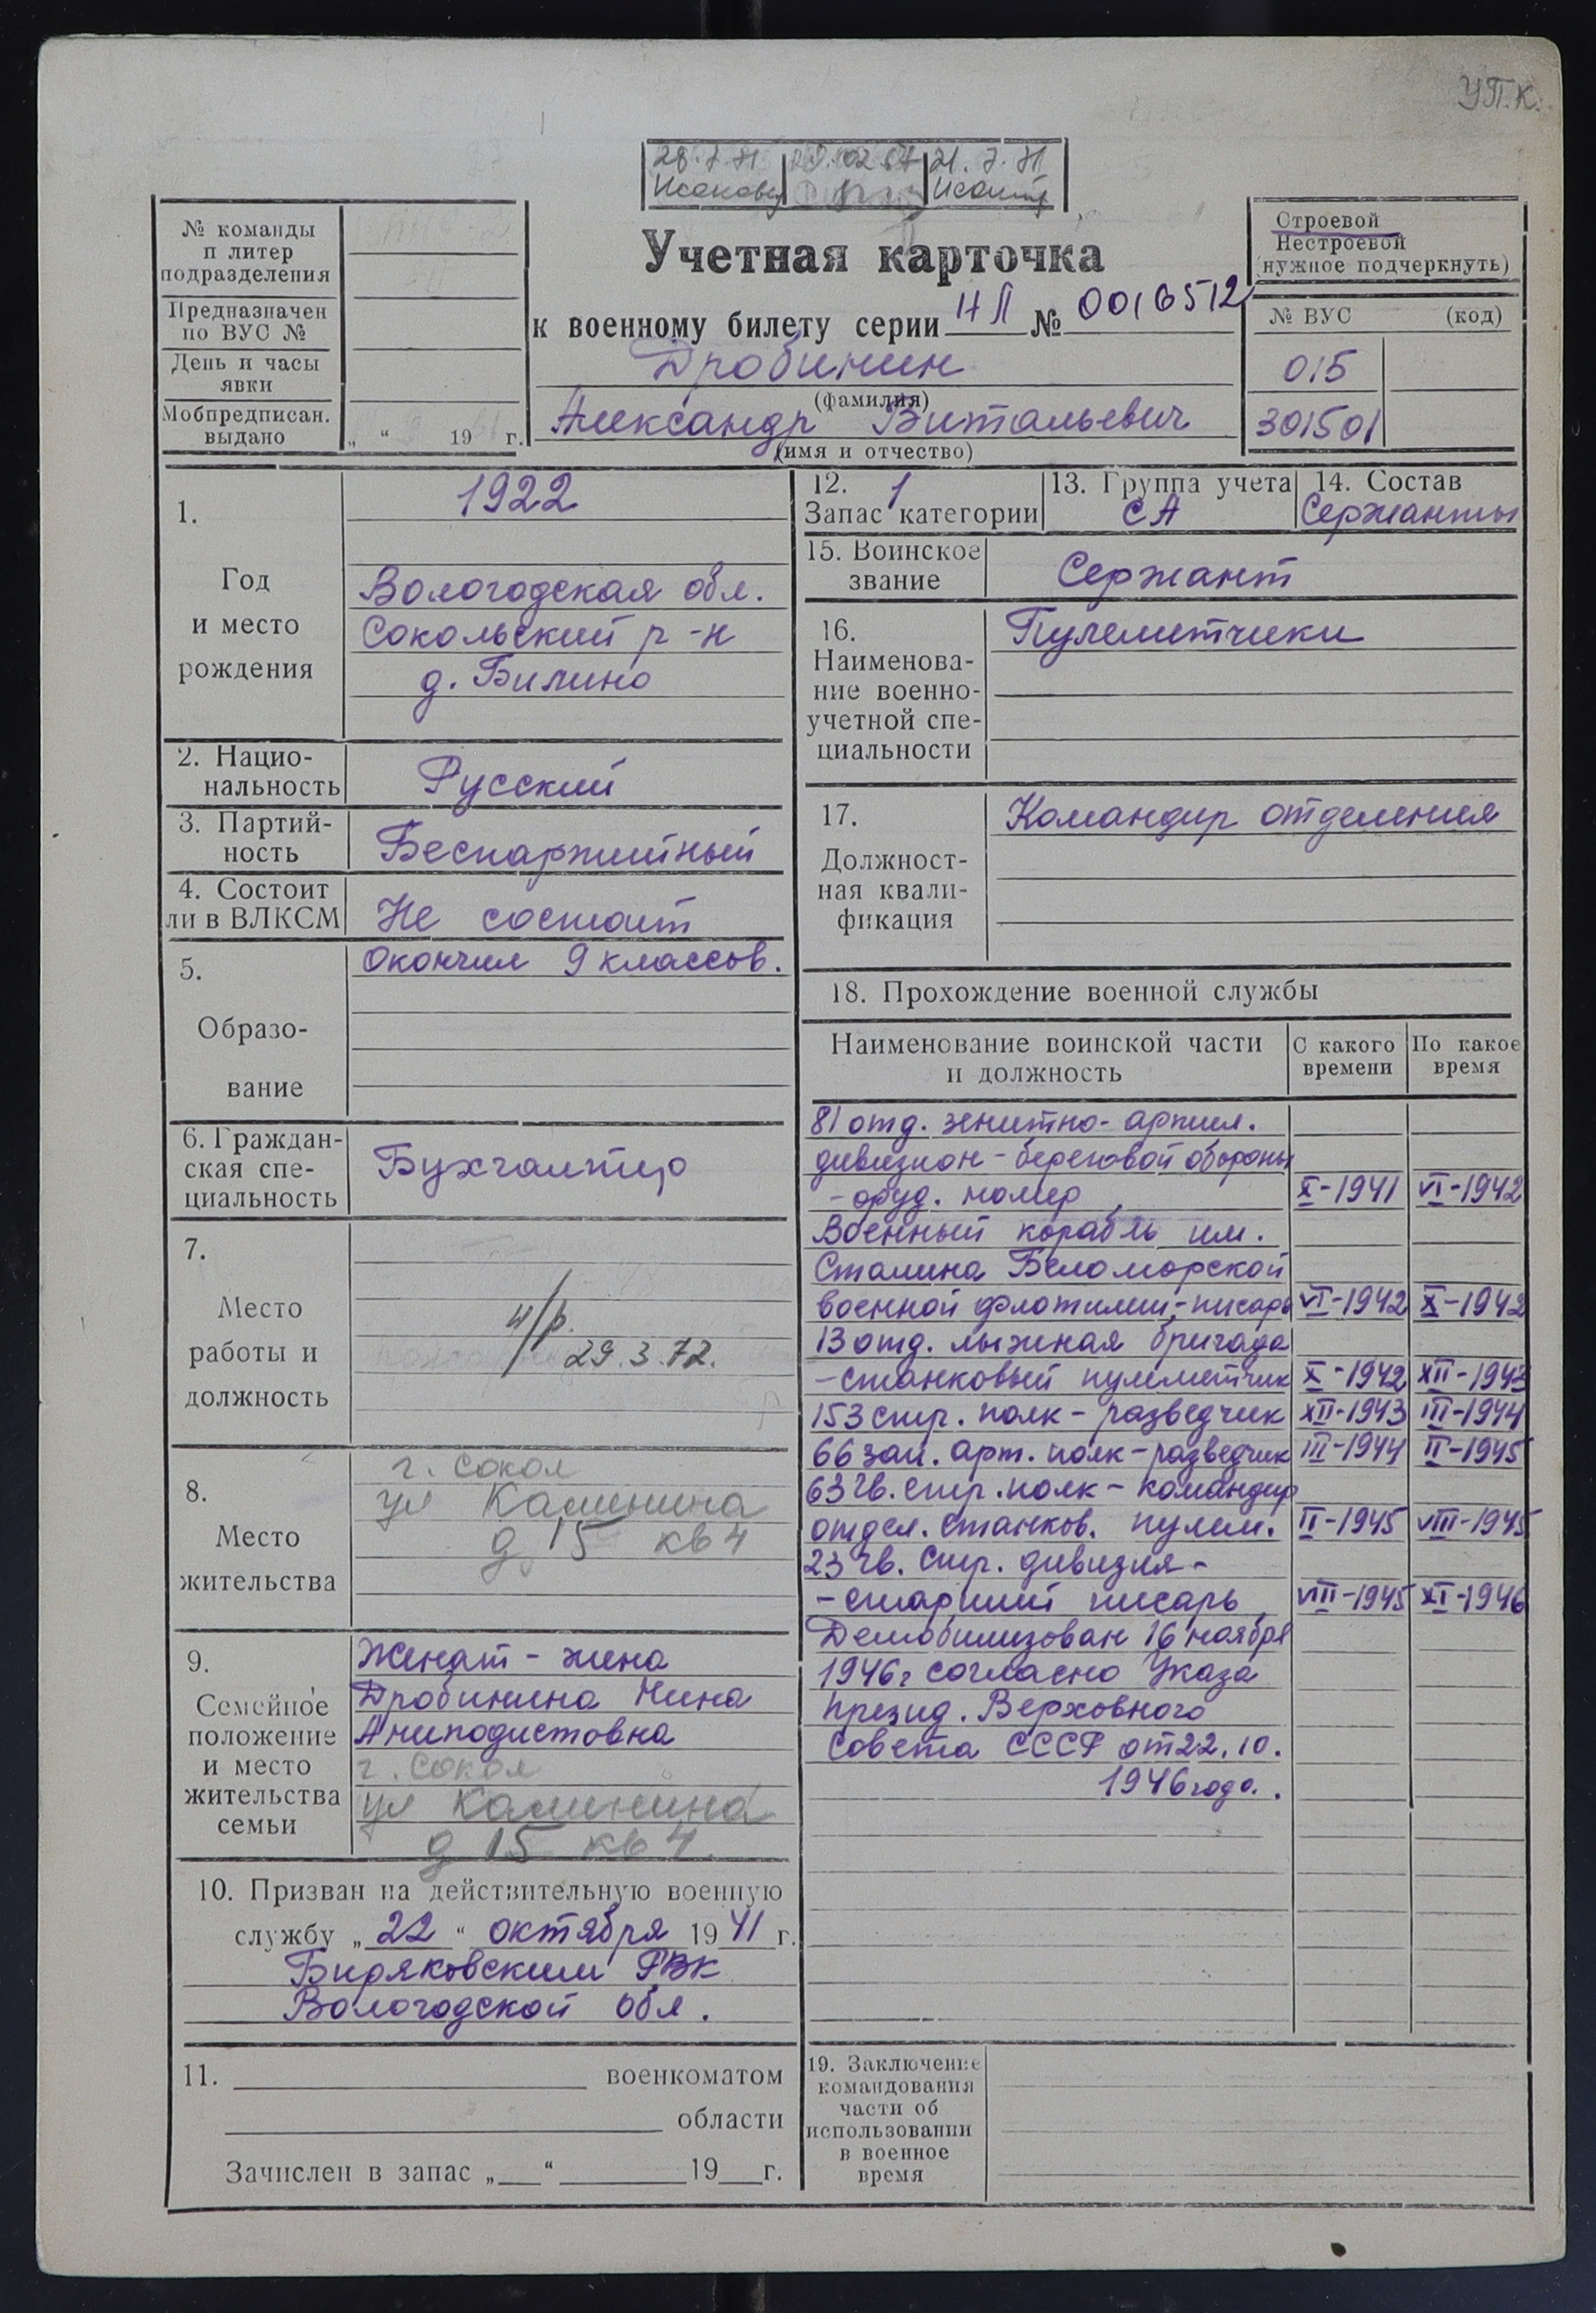 УП.К.
28.7.71 21.7.71
№ команды
и литер
подразделения
Предназначен
по ВУС №
День и часы
явки
Мобпредписан.
выдано „ “ 19 г.
Учетная карточка
к военному билету серии НЛ № 0016512
Дробинин
(фамилия)
Александр Витальевич
(имя и отчество)
Строевой
Нестроевой
(нужное подчеркнуть)
№ ВУС (код)
015
301501
1.
Год
и место
рождения
1922
Вологодская обл.
Сокольский р-н
д. Билино
2. Нацио-
нальность
Русский
3. Партий-
ность
Беспартийный
4. Состоит
ли в ВЛКСМ
Не состоит
5.
Образо-
вание
Окончил 9 классов.
6. Граждан-
ская спе-
циальность
Бухгалтер
7.
Место
работы и
должность
н/р.
29.3.72.
8.
Место
жительства
г. Сокол
ул Калинина
д 15 кв 4
9.
Семейное
положение
и место
жительства
семьи
Женат - жена
Дробинина Нина
Аниподистовна
г. Сокол
ул Калинина
д 15 кв 4.
10. Призван на действительную военную
службу „22“ октября 1941 г.
Биряковским РВК
Вологодской обл.
11. военкоматом
области
Зачислен в запас „ “ 19 г.
12. 1
Запас категории
13. Группа учета
СА
14. Состав
Сержанты
15. Воинское
звание
Сержант
16.
Наименова-
ние военно-
учетной спе-
циальности
Пулеметчики
17.
Должност-
ная квали-
фикация
Командир отделения
18. Прохождение военной службы
Наименование воинской части
и должность
С какого
времени
По какое
время
81 отд. зенитно-артил.
дивизион - береговой обороны
- оруд. номер X-1941 VI-1942
Военный корабль им.
Сталина Беломорской
военной флотилии,-писарь VI-1942 X-1942
13 отд. лыжная бригада
-станковый пулеметчик X-1942 XII-1943
153 стр. полк - разведчик XII-1943 III-1944
66 зап. арт. полк - разведчик III-1944 II-1945
63 гв. стр. полк - командир
отдел. станков. пулем. II-1945 VIII-1945
23 гв. стр. дивизия -
- старший писарь VIII-1945 XI-1946
Демобилизован 16 ноября
1946г согласно Указа
през­ид. Верховного
Совета СССР от 22.10.
1946 года.
19. Заключение
командования
части об
использовании
в военное
время